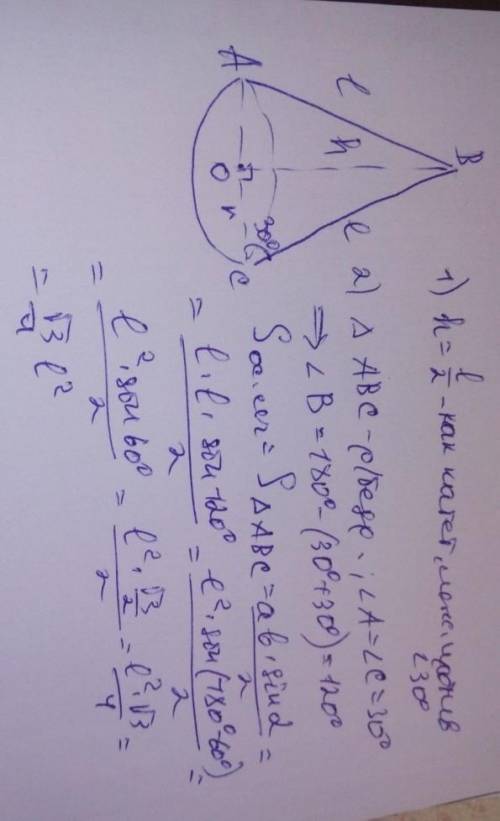 B
A
C
O
l
l
h
r
30°
1) h = l/2 - как катет, леж. против
∠30°
2) Δ ABC - р/бедр.; ∠A = ∠C = 30°
⇒ ∠B = 180° - (30° + 30°) = 120°
S ос. сеч = S Δ ABC = ab · sin α / 2 =
= l · l · sin 120° / 2 = l² · sin(180° - 60°) / 2 =
= l² · sin 60° / 2 = l² · √3/2 / 2 = l² · √3 / 4 =
= √3/4 l²